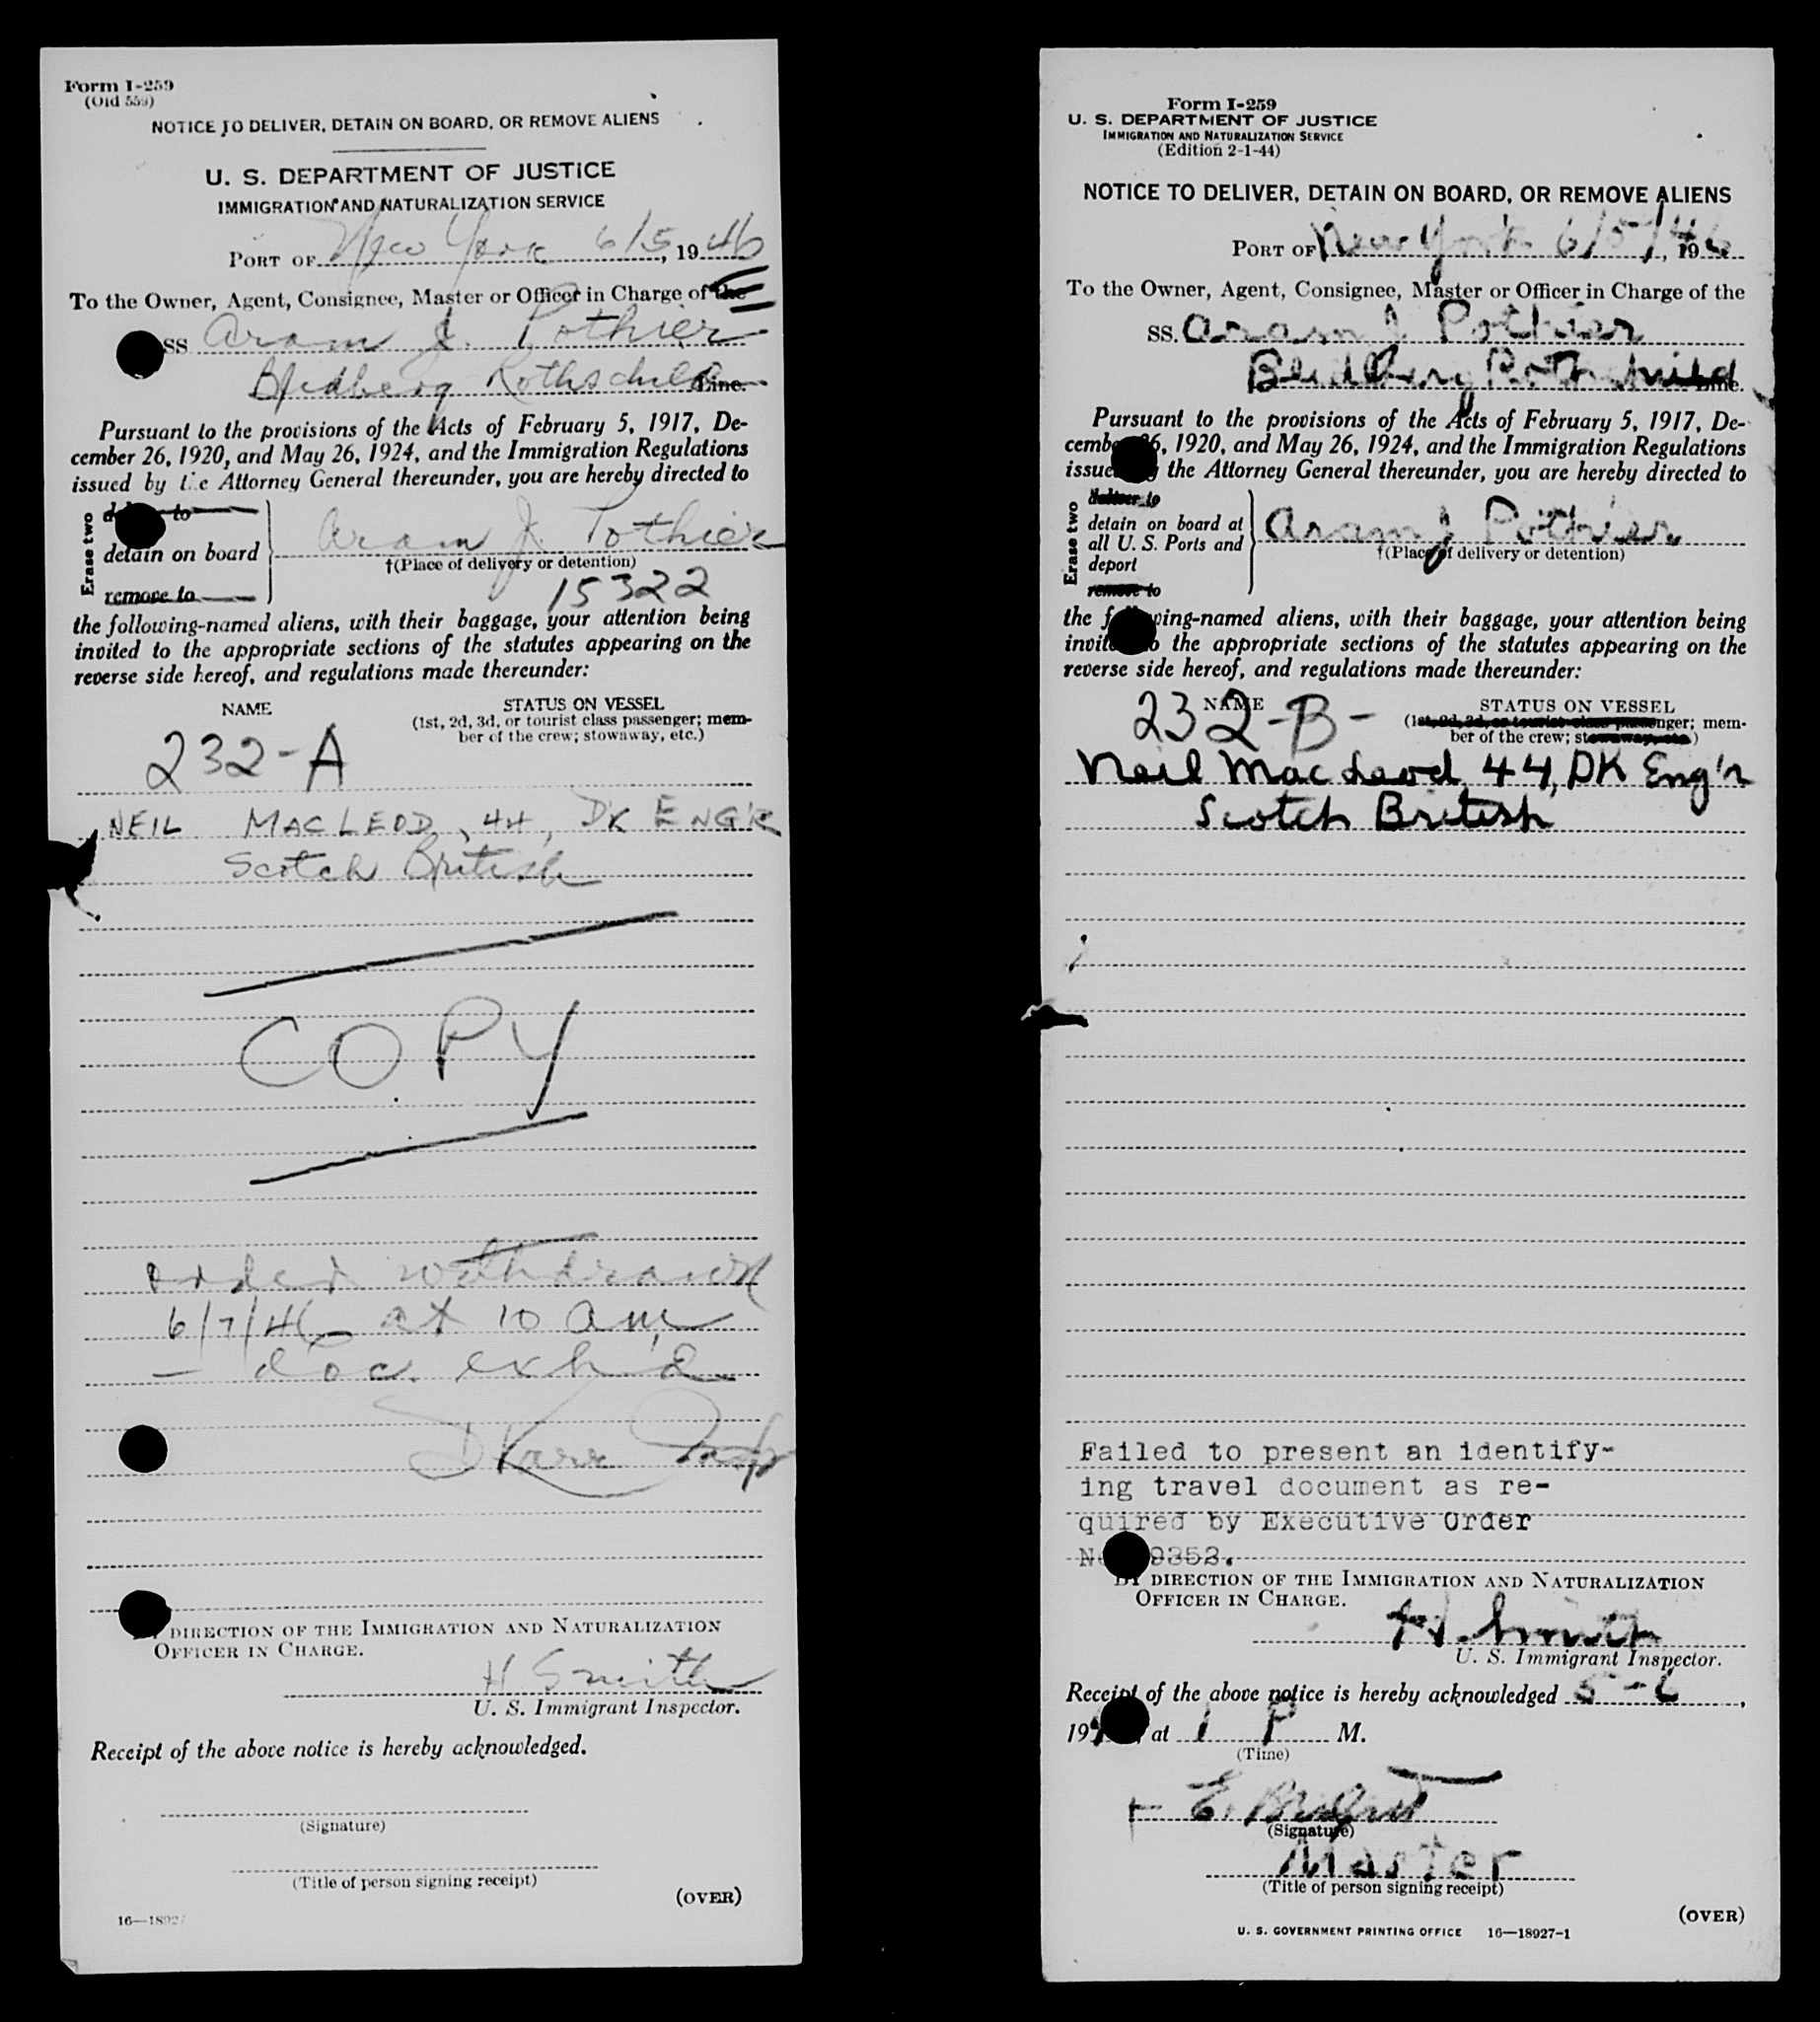 Form I-259
(Old 559)
NOTICE TO DELIVER, DETAIN ON BOARD, OR REMOVE ALIENS
U. S. DEPARTMENT OF JUSTICE
IMMIGRATION AND NATURALIZATION SERVICE
PORT OF New York 6/5, 1946
To the Owner, Agent, Consignee, Master or Officer in Charge of the
SS Aram J. Pothier
Blidberg Rothschild Line.
Pursuant to the provisions of the Acts of February 5, 1917, De-
cember 26, 1920, and May 26, 1924, and the Immigration Regulations
issued by the Attorney General thereunder, you are hereby directed to
Erase two
to
detain on board
remove to
Aram J. Pothier
†(Place of delivery or detention)
15322
the following-named aliens, with their baggage, your attention being
invited to the appropriate sections of the statutes appearing on the
reverse side hereof, and regulations made thereunder:
NAME
STATUS ON VESSEL
(1st, 2d, 3d, or tourist class passenger; mem-
ber of the crew; stowaway, etc.)
232-A
NEIL MACLEOD, 44, DK ENG'R
Scotch British
COPY
order withdrawn
6/7/46 at 10 am
- doc. exh'd
DIRECTION OF THE IMMIGRATION AND NATURALIZATION
OFFICER IN CHARGE.
H Smith
U. S. Immigrant Inspector.
Receipt of the above notice is hereby acknowledged.
(Signature)
(Title of person signing receipt)
(OVER)
16—18927
Form I-259
U. S. DEPARTMENT OF JUSTICE
IMMIGRATION AND NATURALIZATION SERVICE
(Edition 2-1-44)
NOTICE TO DELIVER, DETAIN ON BOARD, OR REMOVE ALIENS
PORT OF New York 6/5/46, 19
To the Owner, Agent, Consignee, Master or Officer in Charge of the
SS. Aram J Pothier
Blidberg Rothchild Line.
Pursuant to the provisions of the Acts of February 5, 1917, De-
cember 26, 1920, and May 26, 1924, and the Immigration Regulations
issued by the Attorney General thereunder, you are hereby directed to
Erase two
deliver to
detain on board at
all U. S. Ports and
deport
remove to
Aram J Pothier
†(Place of delivery or detention)
the following-named aliens, with their baggage, your attention being
invited to the appropriate sections of the statutes appearing on the
reverse side hereof, and regulations made thereunder:
NAME
STATUS ON VESSEL
(1st, 2d, 3d, or tourist class passenger; mem-
ber of the crew; stowaway, etc.)
232-B-
Neil MacLeod 44, DK Eng'r
Scotch British
Failed to present an identify-
ing travel document as re-
quired by Executive Order
No. 9352.
BY DIRECTION OF THE IMMIGRATION AND NATURALIZATION
OFFICER IN CHARGE.
H. Smith
U. S. Immigrant Inspector.
Receipt of the above notice is hereby acknowledged 5-6,
19 , at 1 P M.
(Time)
(Signature)
Master
(Title of person signing receipt)
(OVER)
U. S. GOVERNMENT PRINTING OFFICE 16—18927-1